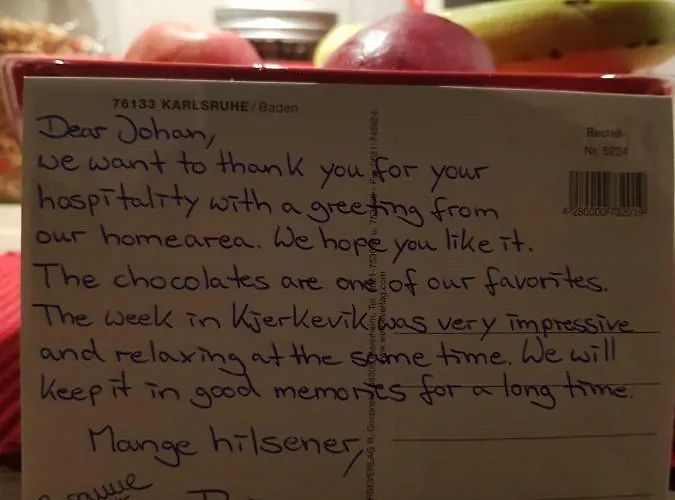 76133 KARLSRUHE/Baden
Bestell-
Nr. 5224
4 280000 732019
Dear Johan,
we want to thank you for your
hospitality with a greeting from
our homearea. We hope you like it.
The chocolates are one of our favorites.
The week in Kjerkevik was very impressive
and relaxing at the same time. We will
keep it in good memories for a long time.
Mange hilsener,